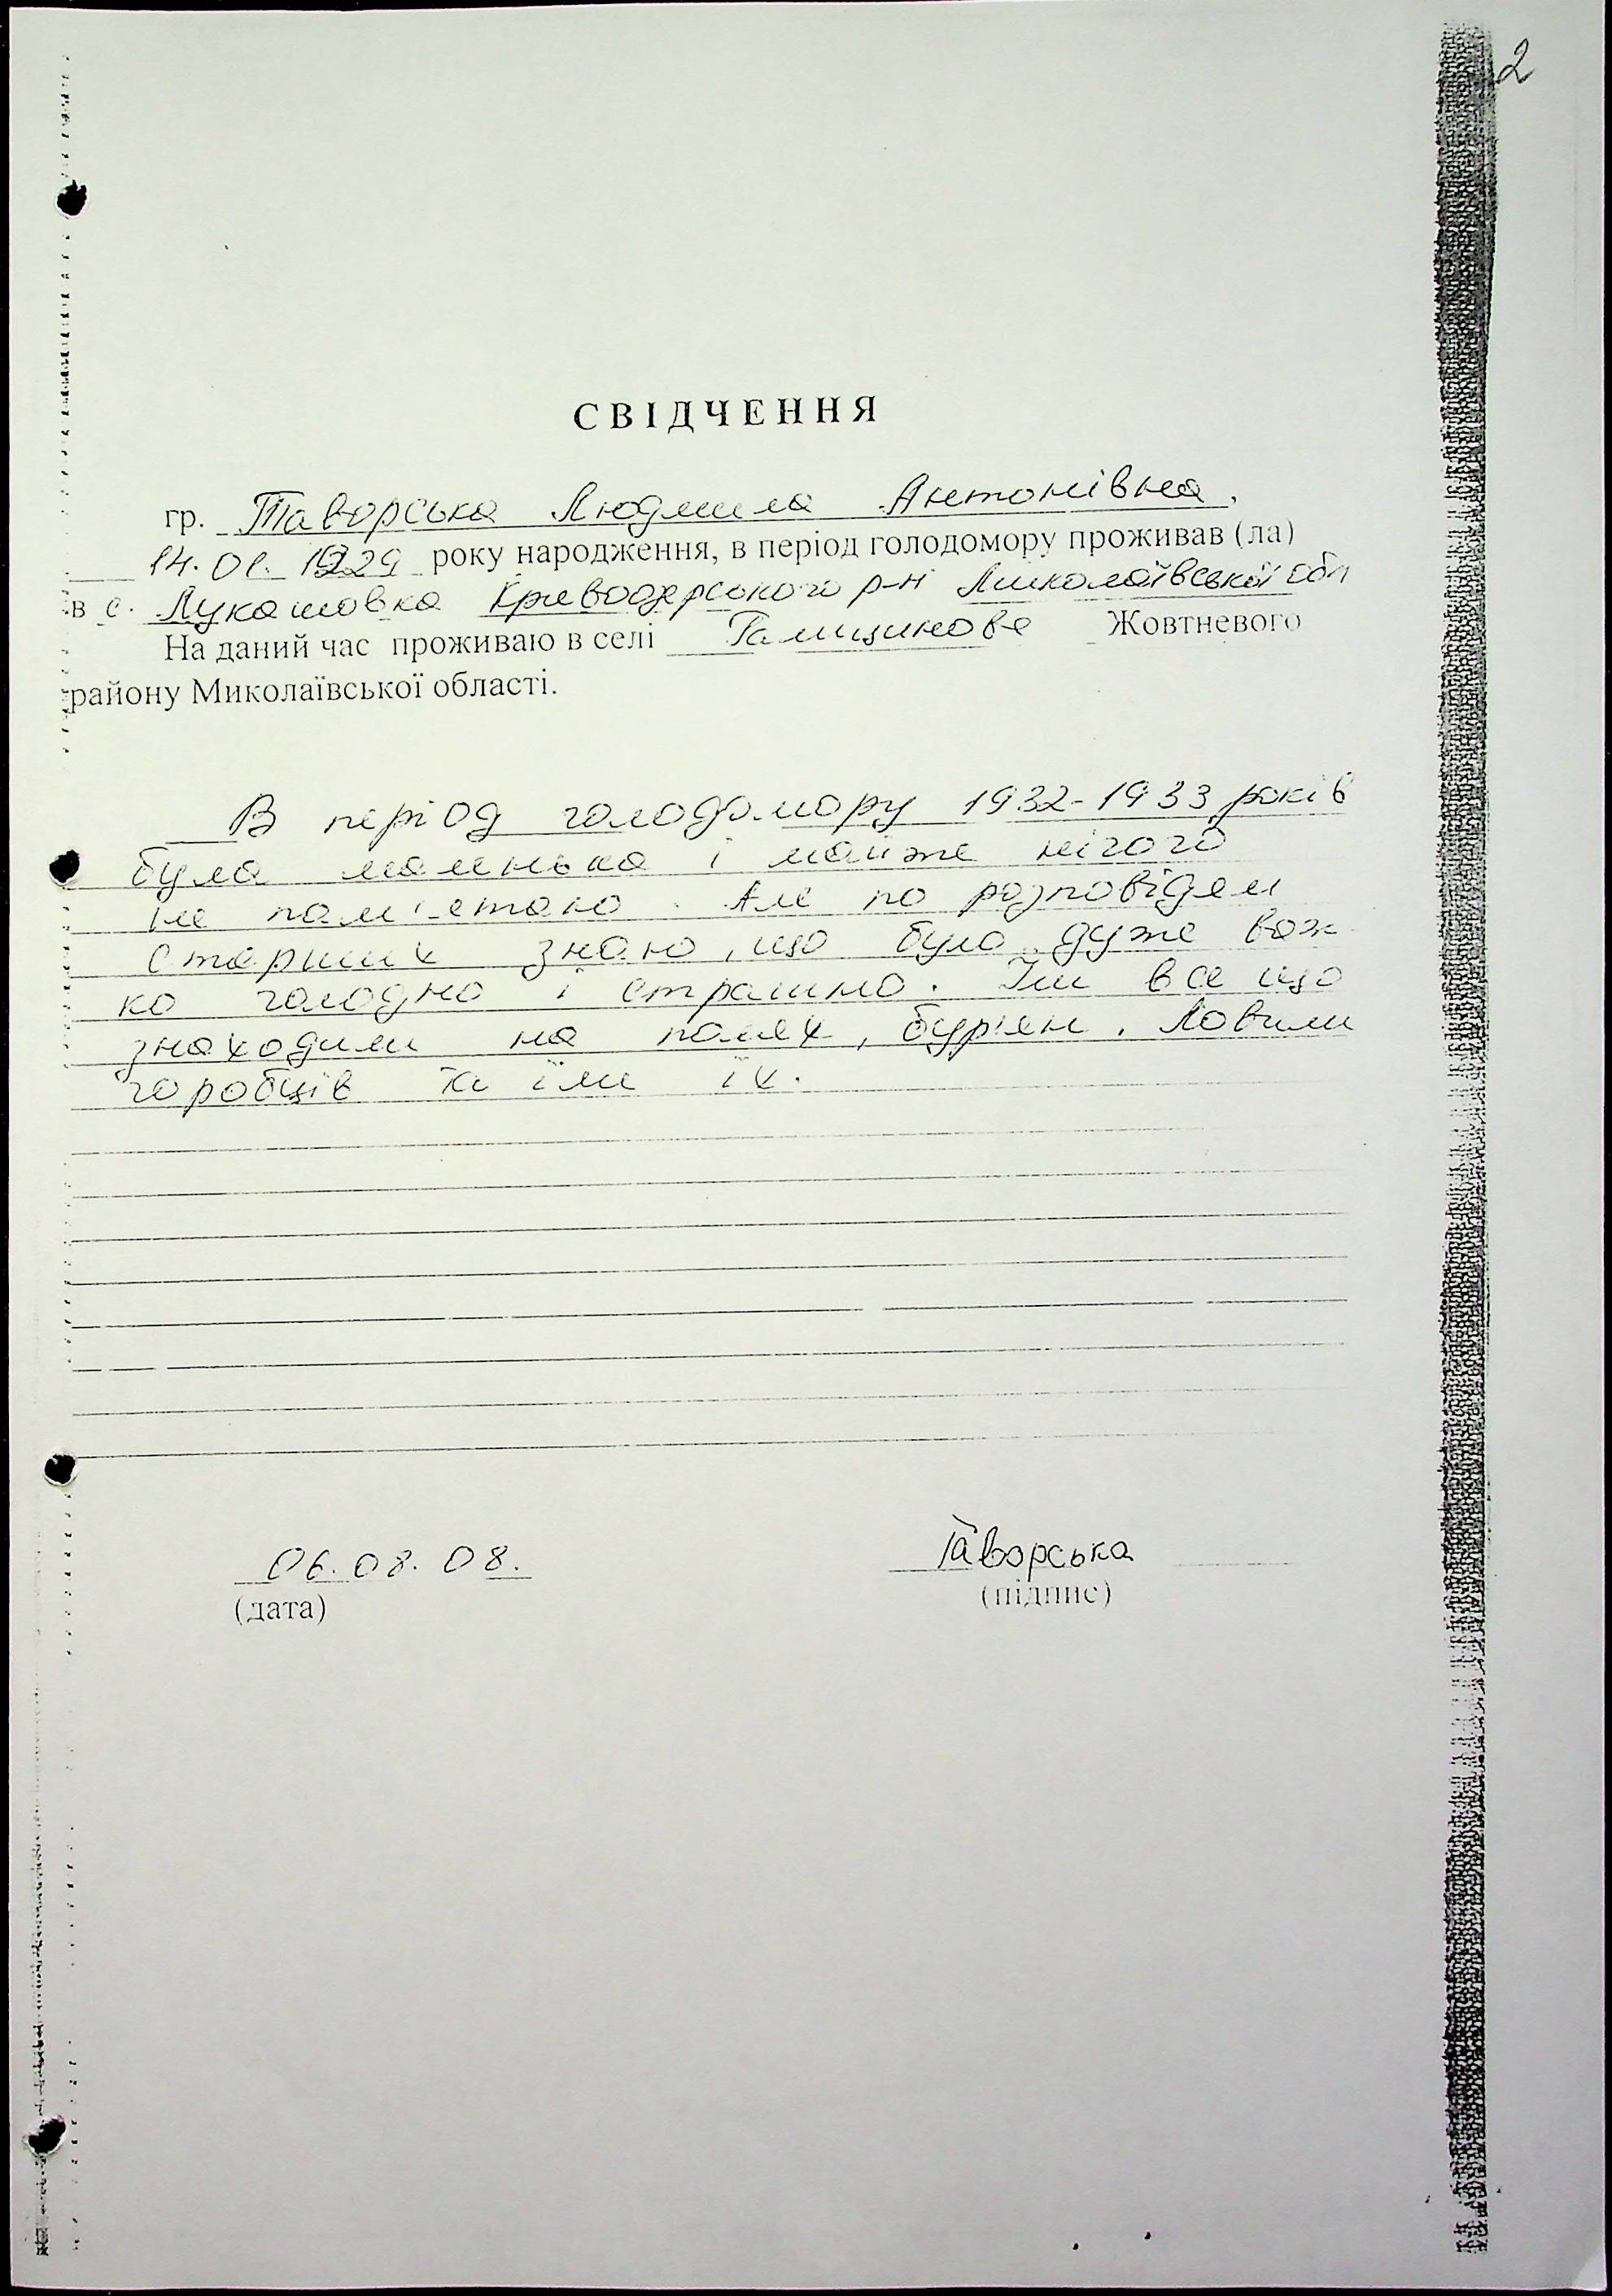 2
СВІДЧЕННЯ
гр. Таворська Людмила Антонівна.
14.01. 1929 року народження, в період голодомору проживав (ла)
в с. Лукашовка Кривоозерського р-н Миколаївської обл
На даний час проживаю в селі Галицинове Жовтневого
району Миколаївської області.
В період голодомору 1932-1933 років
була маленька і майже нічого
не пам'ятаю. Але по розповідям
старших знаю, що було дуже важ
ко голодно і страшно. Їли все що
знаходили на полях, бурян. Ловили
горобців та їли їх.
06.08.08.
Таворська
(дата)
(підпис)